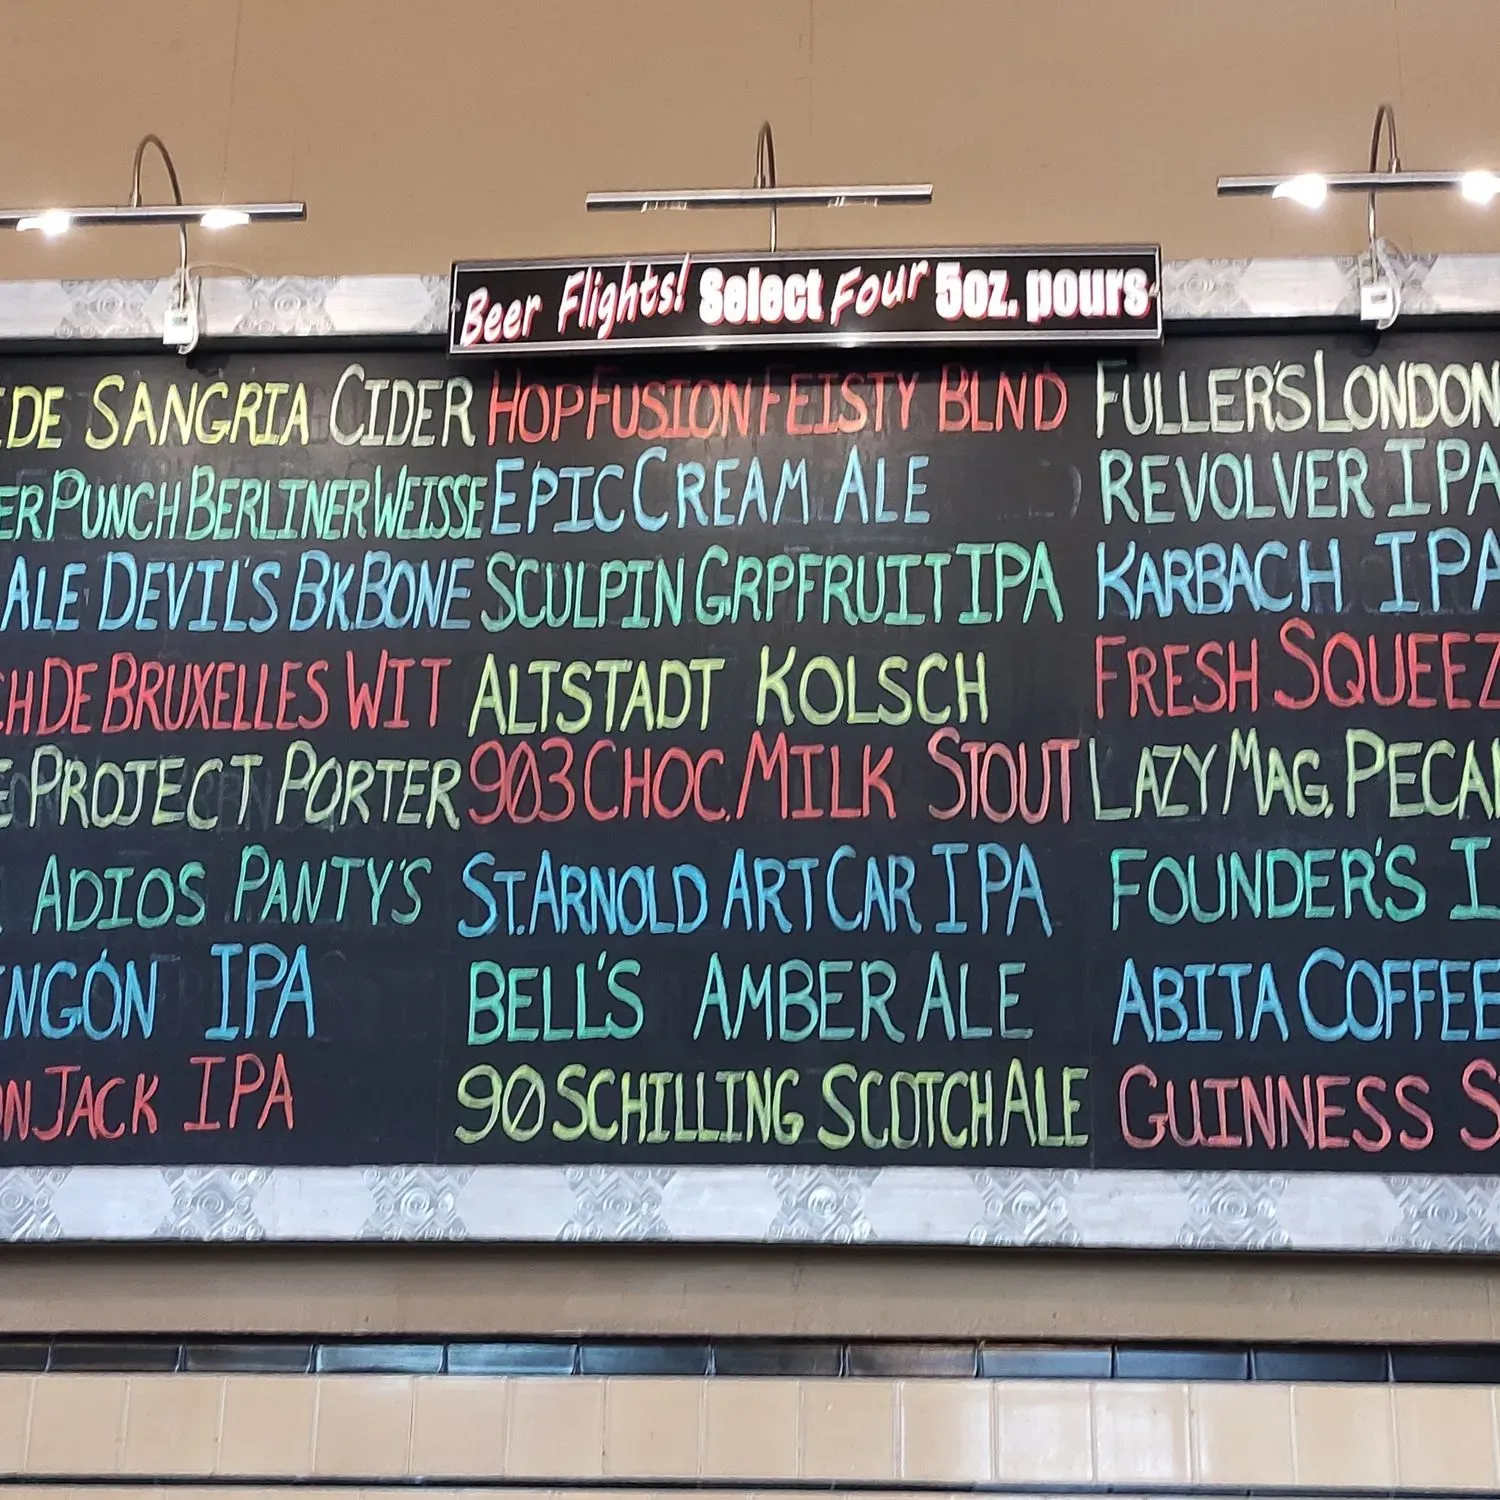 Beer Flights! Select Four 5oz. pours
SANGRIA CIDER
PUNCH BERLINER WEISSE
ALE DEVIL'S BK.BONE
DE BRUXELLES WIT
PROJECT PORTER
ADIOS PANTY'S
IPA
JACK IPA
HOP FUSION FEISTY BLND
EPIC CREAM ALE
SCULPIN GRPFRUIT IPA
ALTSTADT KOLSCH
903 CHOC. MILK STOUT
ST. ARNOLD ART CAR IPA
BELL'S AMBER ALE
90 SCHILLING SCOTCH ALE
FULLER'S LONDON
REVOLVER IPA
KARBACH IPA
FRESH SQUEEZ
LAZY MAG. PECAN
FOUNDER'S
ABITA COFFEE
GUINNESS S